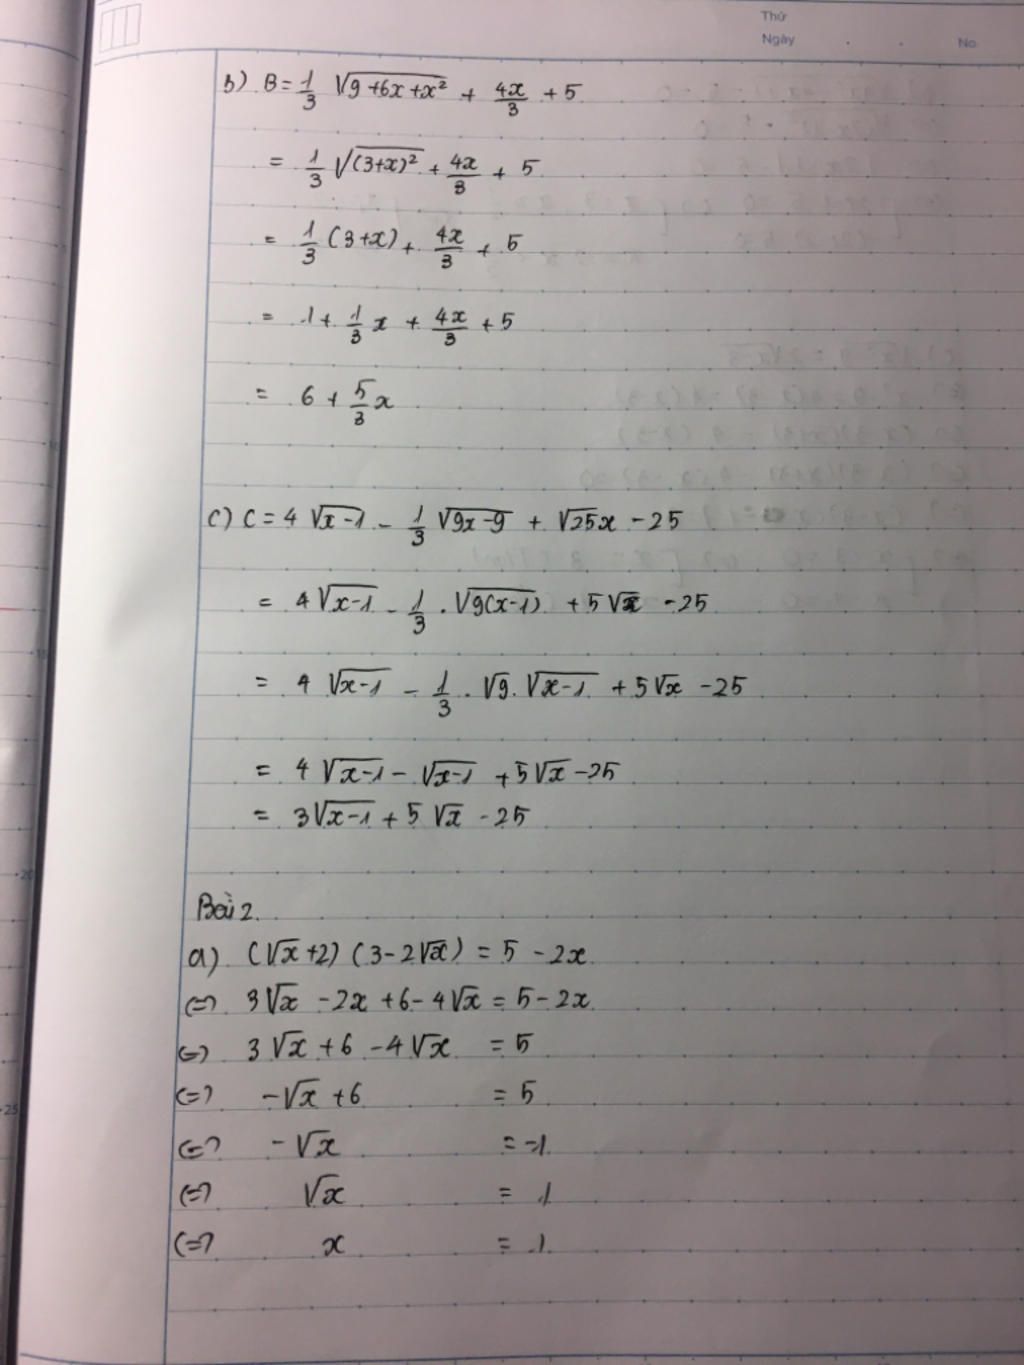 Thứ
Ngày
No
b) B = 1/3 √(9+6x+x²) + 4x/3 + 5
= 1/3 √((3+x)²) + 4x/3 + 5
= 1/3 (3+x) + 4x/3 + 5
= 1 + 1/3 x + 4x/3 + 5
= 6 + 5/3 x
c) C = 4 √(x-1) - 1/3 √(9x-9) + √25x - 25
= 4√(x-1) - 1/3 . √(9(x-1)) + 5√x - 25
= 4 √(x-1) - 1/3 . √9 . √(x-1) + 5√x - 25
= 4 √(x-1) - √(x-1) + 5√x - 25
= 3√(x-1) + 5 √x - 25
Bài 2.
a) (√x + 2) (3 - 2√x) = 5 - 2x
(=) 3√x - 2x + 6 - 4√x = 5 - 2x
(=) 3√x + 6 - 4√x = 5
(=) -√x + 6 = 5
(=) -√x = -1
(=) √x = 1
(=) x = 1